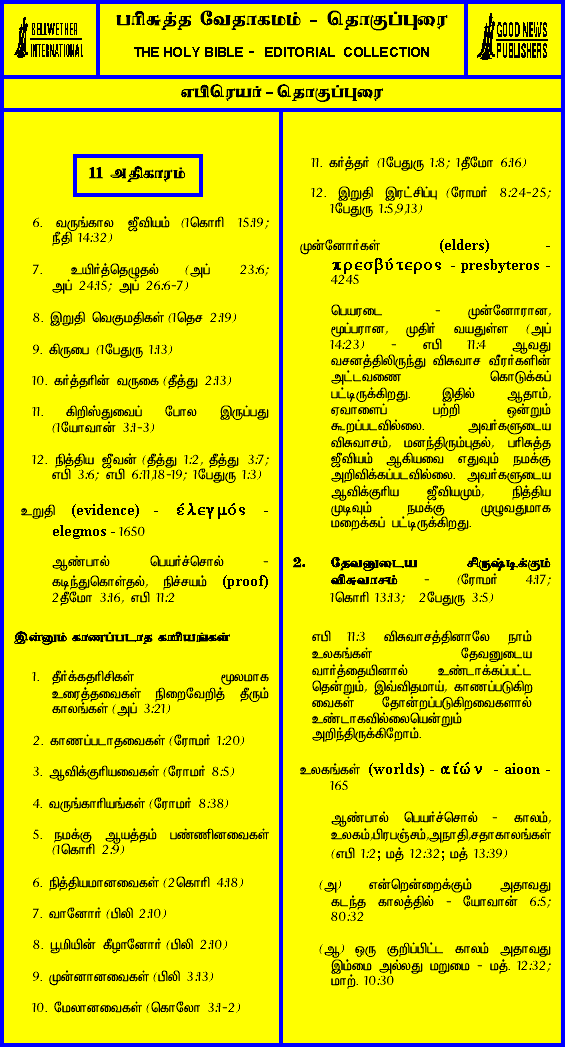 BELLWETHER
INTERNATIONAL
பரிசுத்த வேதாகமம் - தொகுப்புரை
THE HOLY BIBLE - EDITORIAL COLLECTION
GOOD NEWS
PUBLISHERS
எபிரெயர் - தொகுப்புரை
11 அதிகாரம்
6. வருங்கால ஜீவியம் (1கொரி 15:19;
நீதி 14:32)
7. உயிர்த்தெழுதல் (அப் 23:6;
அப் 24:15; அப் 26:6-7)
8. இறுதி வெகுமதிகள் (1தெச 2:19)
9. கிருபை (1பேதுரு 1:13)
10. கர்த்தரின் வருகை (தீத்து 2:13)
11. கிறிஸ்துவைப் போல இருப்பது
(1யோவான் 3:1-3)
12. நித்திய ஜீவன் (தீத்து 1:2, தீத்து 3:7;
எபி 3:6; எபி 6:11,18-19; 1பேதுரு 1:3)
உறுதி (evidence) - έλεγμός -
elegmos - 1650
ஆண்பால் பெயர்ச்சொல் -
கடிந்துகொள்தல், நிச்சயம் (proof)
2தீமோ 3:16, எபி 11:2
இன்னும் காணப்படாத காரியங்கள்
1. தீர்க்கதரிசிகள் மூலமாக
உரைத்தவைகள் நிறைவேறித் தீரும்
காலங்கள் (அப் 3:21)
2. காணப்படாதவைகள் (ரோமர் 1:20)
3. ஆவிக்குரியவைகள் (ரோமர் 8:5)
4. வருங்காரியங்கள் (ரோமர் 8:38)
5. நமக்கு ஆயத்தம் பண்ணினவைகள்
(1கொரி 2:9)
6. நித்தியமானவைகள் (2கொரி 4:18)
7. வானோர் (பிலி 2:10)
8. பூமியின் கீழானோர் (பிலி 2:10)
9. முன்னானவைகள் (பிலி 3:13)
10. மேலானவைகள் (கொலோ 3:1-2)
11. கர்த்தர் (1பேதுரு 1:8; 1தீமோ 6:16)
12. இறுதி இரட்சிப்பு (ரோமர் 8:24-25;
1பேதுரு 1:5,9,13)
முன்னோர்கள் (elders) -
πρεσβύτερος - presbyteros -
4245
பெயரடை - முன்னோரான,
மூப்பரான, முதிர் வயதுள்ள (அப்
14:23) - எபி 11:4 ஆவது
வசனத்திலிருந்து விசுவாச வீரர்களின்
அட்டவணை கொடுக்கப்
பட்டிருக்கிறது. இதில் ஆதாம்,
ஏவாளைப் பற்றி ஒன்றும்
கூறப்படவில்லை. அவர்களுடைய
விசுவாசம், மனந்திரும்புதல், பரிசுத்த
ஜீவியம் ஆகியவை எதுவும் நமக்கு
அறிவிக்கப்படவில்லை. அவர்களுடைய
ஆவிக்குரிய ஜீவியமும், நித்திய
முடிவும் நமக்கு முழுவதுமாக
மறைக்கப் பட்டிருக்கிறது.
2. தேவனுடைய சிருஷ்டிக்கும்
விசுவாசம் - (ரோமர் 4:17;
1கொரி 13:13; 2பேதுரு 3:5)
எபி 11:3 விசுவாசத்தினாலே நாம்
உலகங்கள் தேவனுடைய
வார்த்தையினால் உண்டாக்கப்பட்ட
தென்றும், இவ்விதமாய், காணப்படுகிற
வைகள் தோன்றப்படுகிறவைகளால்
உண்டாகவில்லையென்றும்
அறிந்திருக்கிறோம்.
உலகங்கள் (worlds) - αίών - aioon -
165
ஆண்பால் பெயர்ச்சொல் - காலம்,
உலகம்,பிரபஞ்சம்,அநாதி,சதாகாலங்கள்
(எபி 1:2; மத் 12:32; மத் 13:39)
(அ) என்றென்றைக்கும் அதாவது
கடந்த காலத்தில் - யோவான் 6:5;
80:32
(ஆ) ஒரு குறிப்பிட்ட காலம் அதாவது
இம்மை அல்லது மறுமை - மத். 12:32;
மாற். 10:30